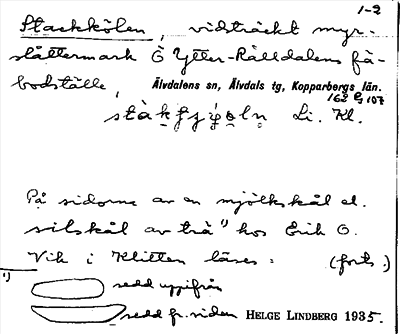 1-2
Stackkölen, vidsträckt myr-
slåttermark Ö Ytter-Rålldalens fä-
bodställe, Älvdalens sn, Älvdals tg, Kopparbergs län.
162 G 107
Li. Kl.
På sidorna av en mjölkskål el.
silskål av trä 1) hos Erik O.
Vik i Klitten läses: (forts.)
1) sedd uppifrån
sedd fr. sidan HELGE LINDBERG 1935.